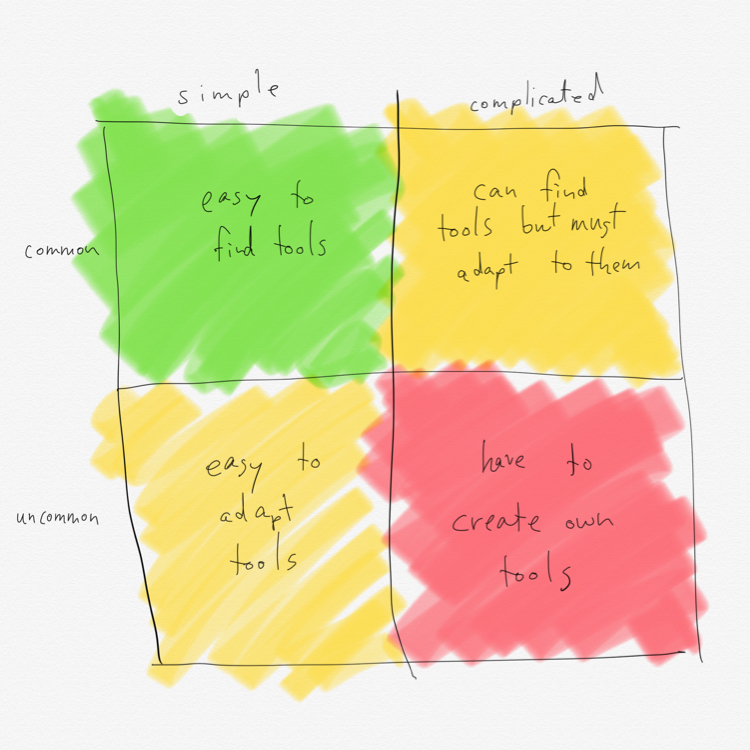 simple
complicated
common
easy to
find tools
can find
tools but must
adapt to them
uncommon
easy to
adapt
tools
have to
create own
tools